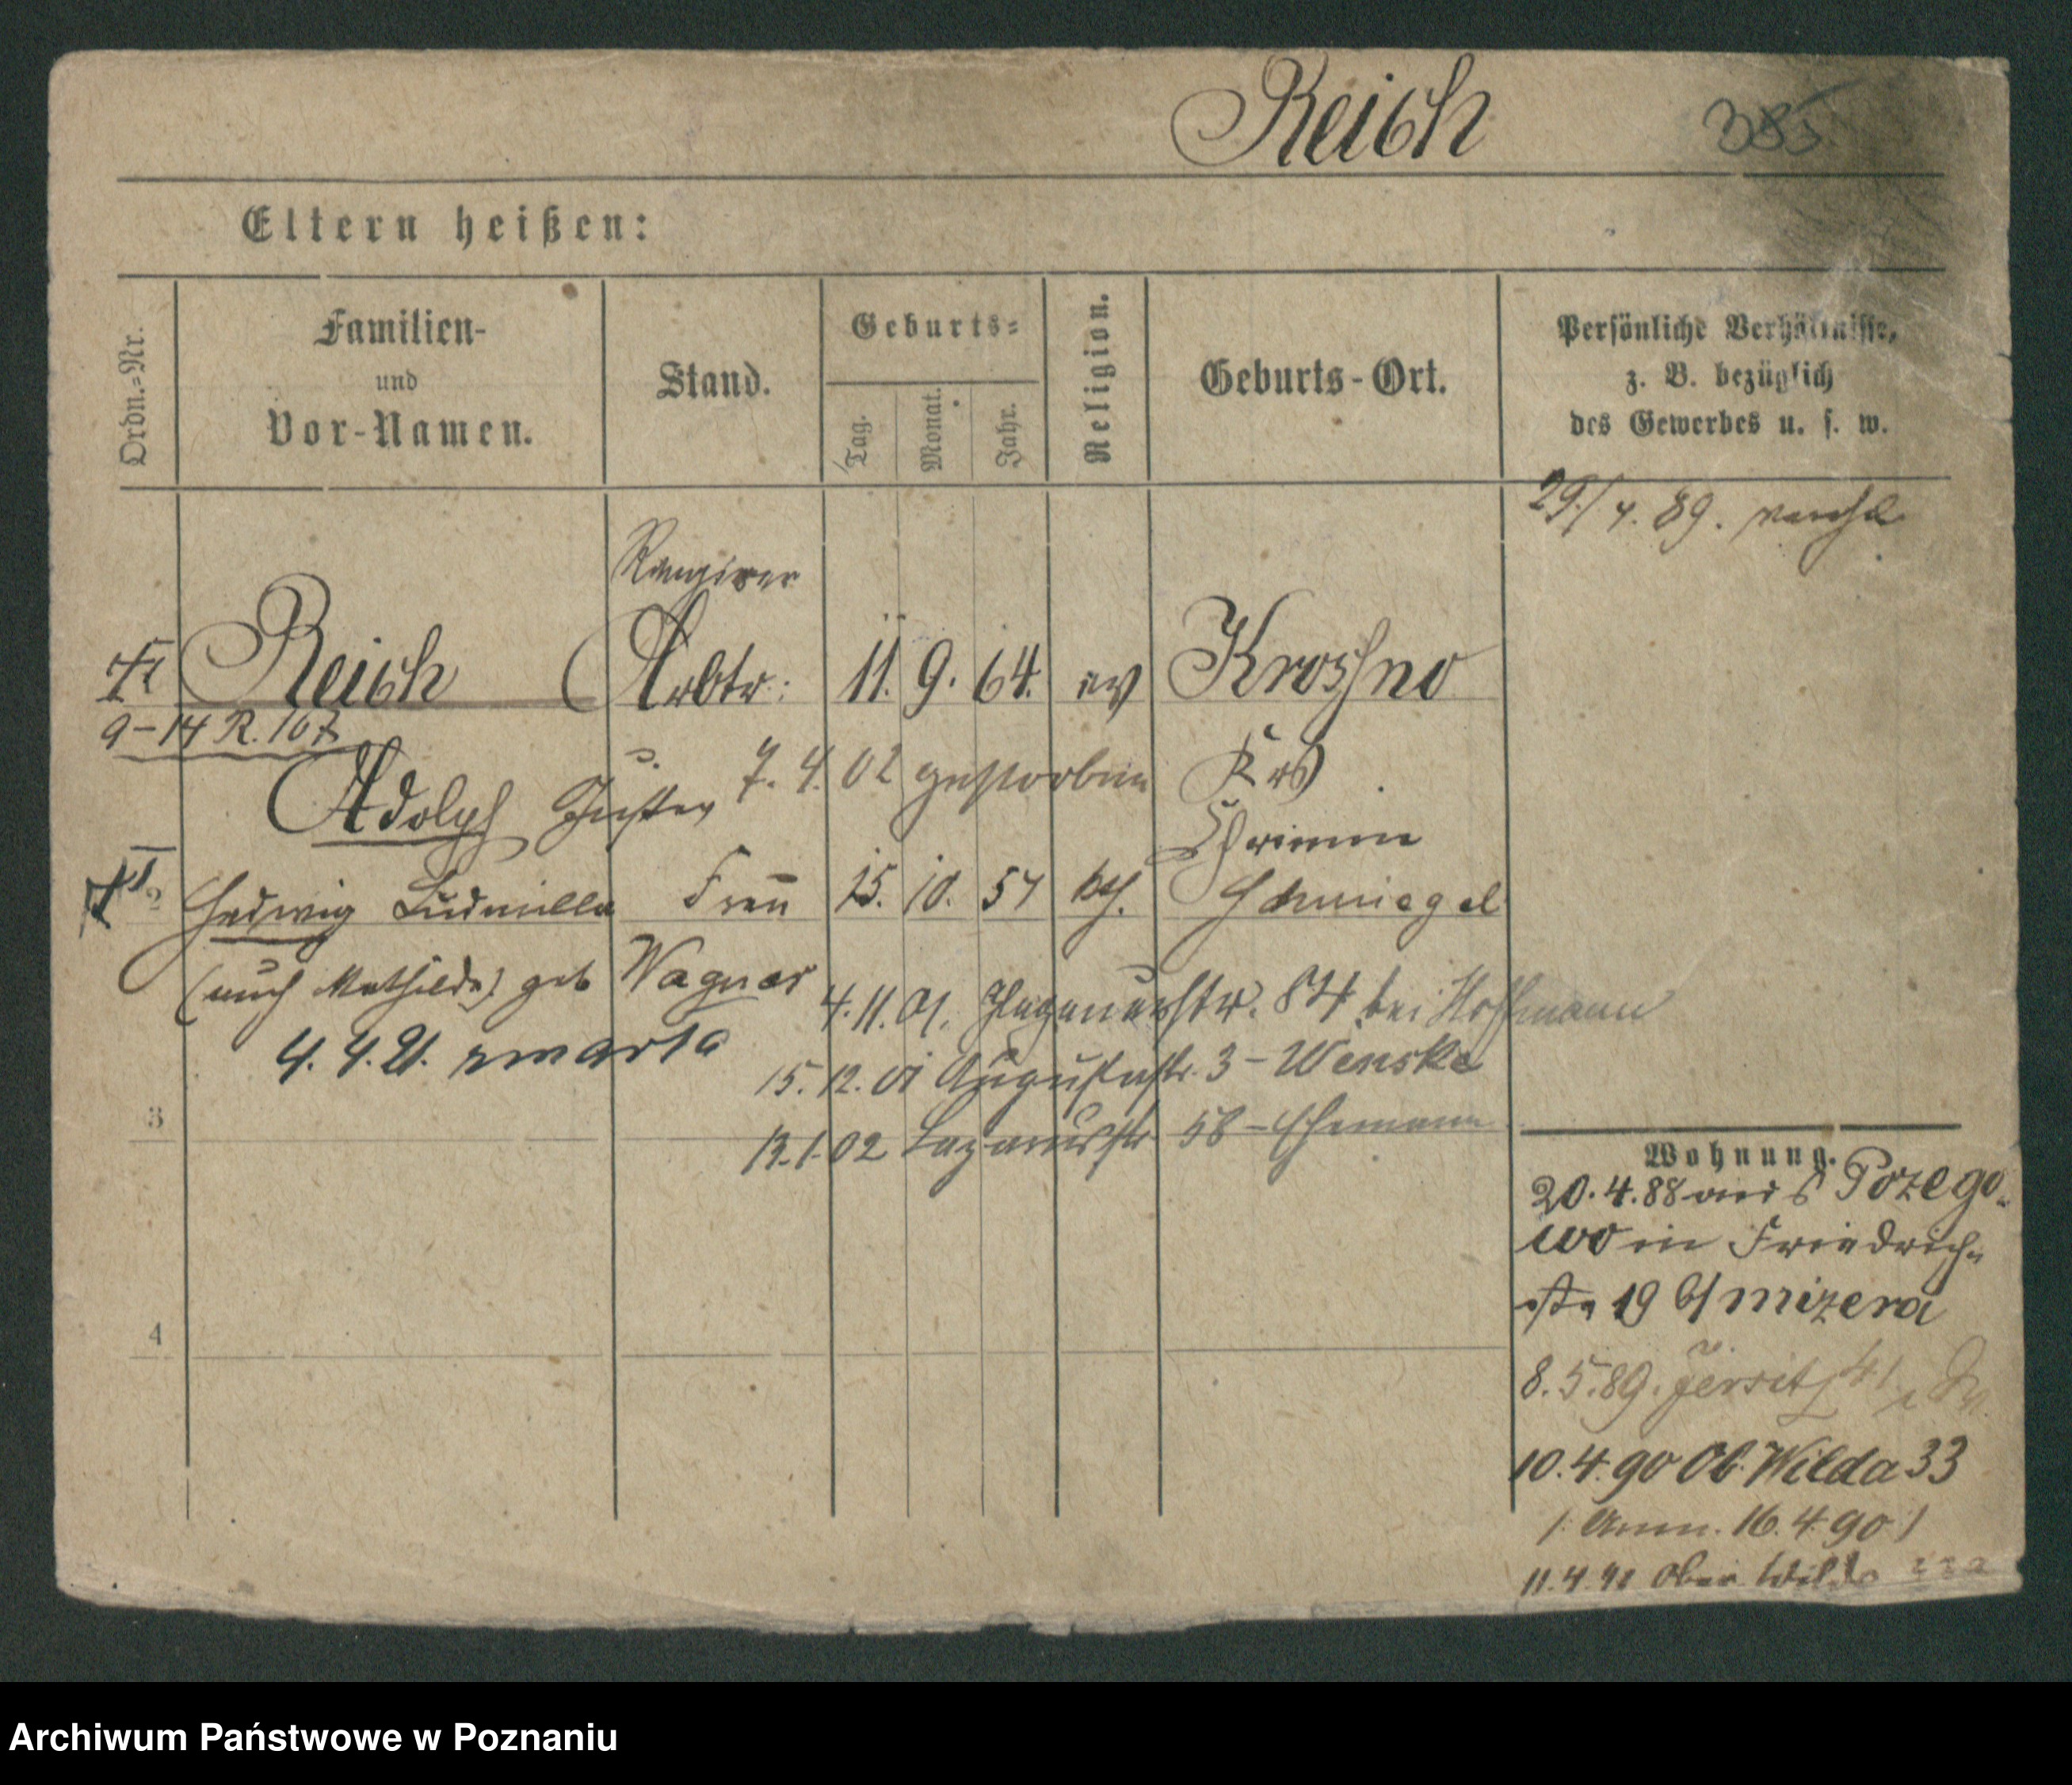 Reich 385
Eltern heißen:
Ordn.-Nr.
Familien-
und
Vor-Namen.
Stand.
Geburts-
Tag.
Monat.
Jahr.
Religion.
Geburts-Ort.
Persönliche Verhältnisse,
z. B. bezüglich
des Gewerbes u. s. w.
29./4. 89. verehl
Rangirer
Reich Arbtr: 11. 9. 64. ev Kroshno
9-14 R. 167
Adolph Gustav 7. 4. 02 gestorben Krs
Schrimm
2 Hedwig Ludmilla Frau 15. 10. 57 kth. Schmiegel
(auch Mathilde) geb Wagner
4. 11. 01. Glogauerstr. 84 bei Hoffmann
4. 4. 21. zmarła
15. 12. 01 Augustastr. 3 - Wenske
13. 1. 02 Lazarusstr 58 - Ehemann
3
4
Wohnung.
20. 4. 88 aus Pozego-
wo in Friedrich-
str 19 b/ mizera
8. 5. 89. Jersitz 41
10. 4. 90 Ob. Wilda 33
/: Anm. 16. 4. 90 :/
11. 4. 91 Ober Wilda
Archiwum Państwowe w Poznaniu